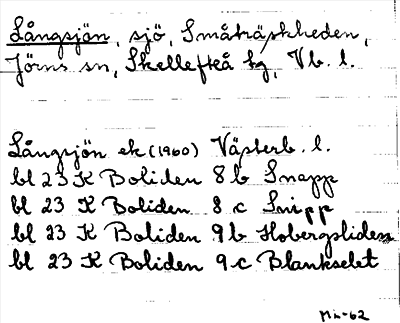 Långsjön, sjö, Småträskheden,
Jörns sn, Skellefteå tg, Vb. l.
Långsjön ek (1960) Västerb. l.
bl 23 K Boliden 8 b Snapp
bl 23 K Boliden 8 c Snipp
bl 23 K Boliden 9 b Hobergsliden
bl 23 K Boliden 9 c Blankselet